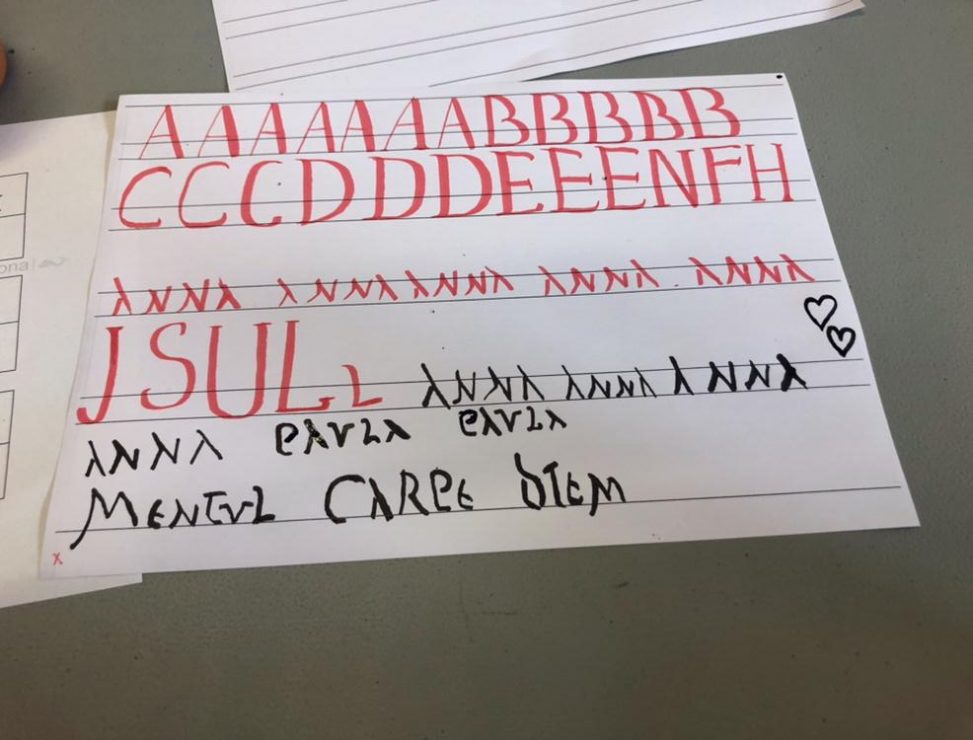 AAAAAAABBBBB
CCCDDDEEENFH
ANNA ANNA ANNA ANNA ANNA
JSULL ANNA ANNA ANNA
ANNA PAULA PAULA
CARPE DIEM
x